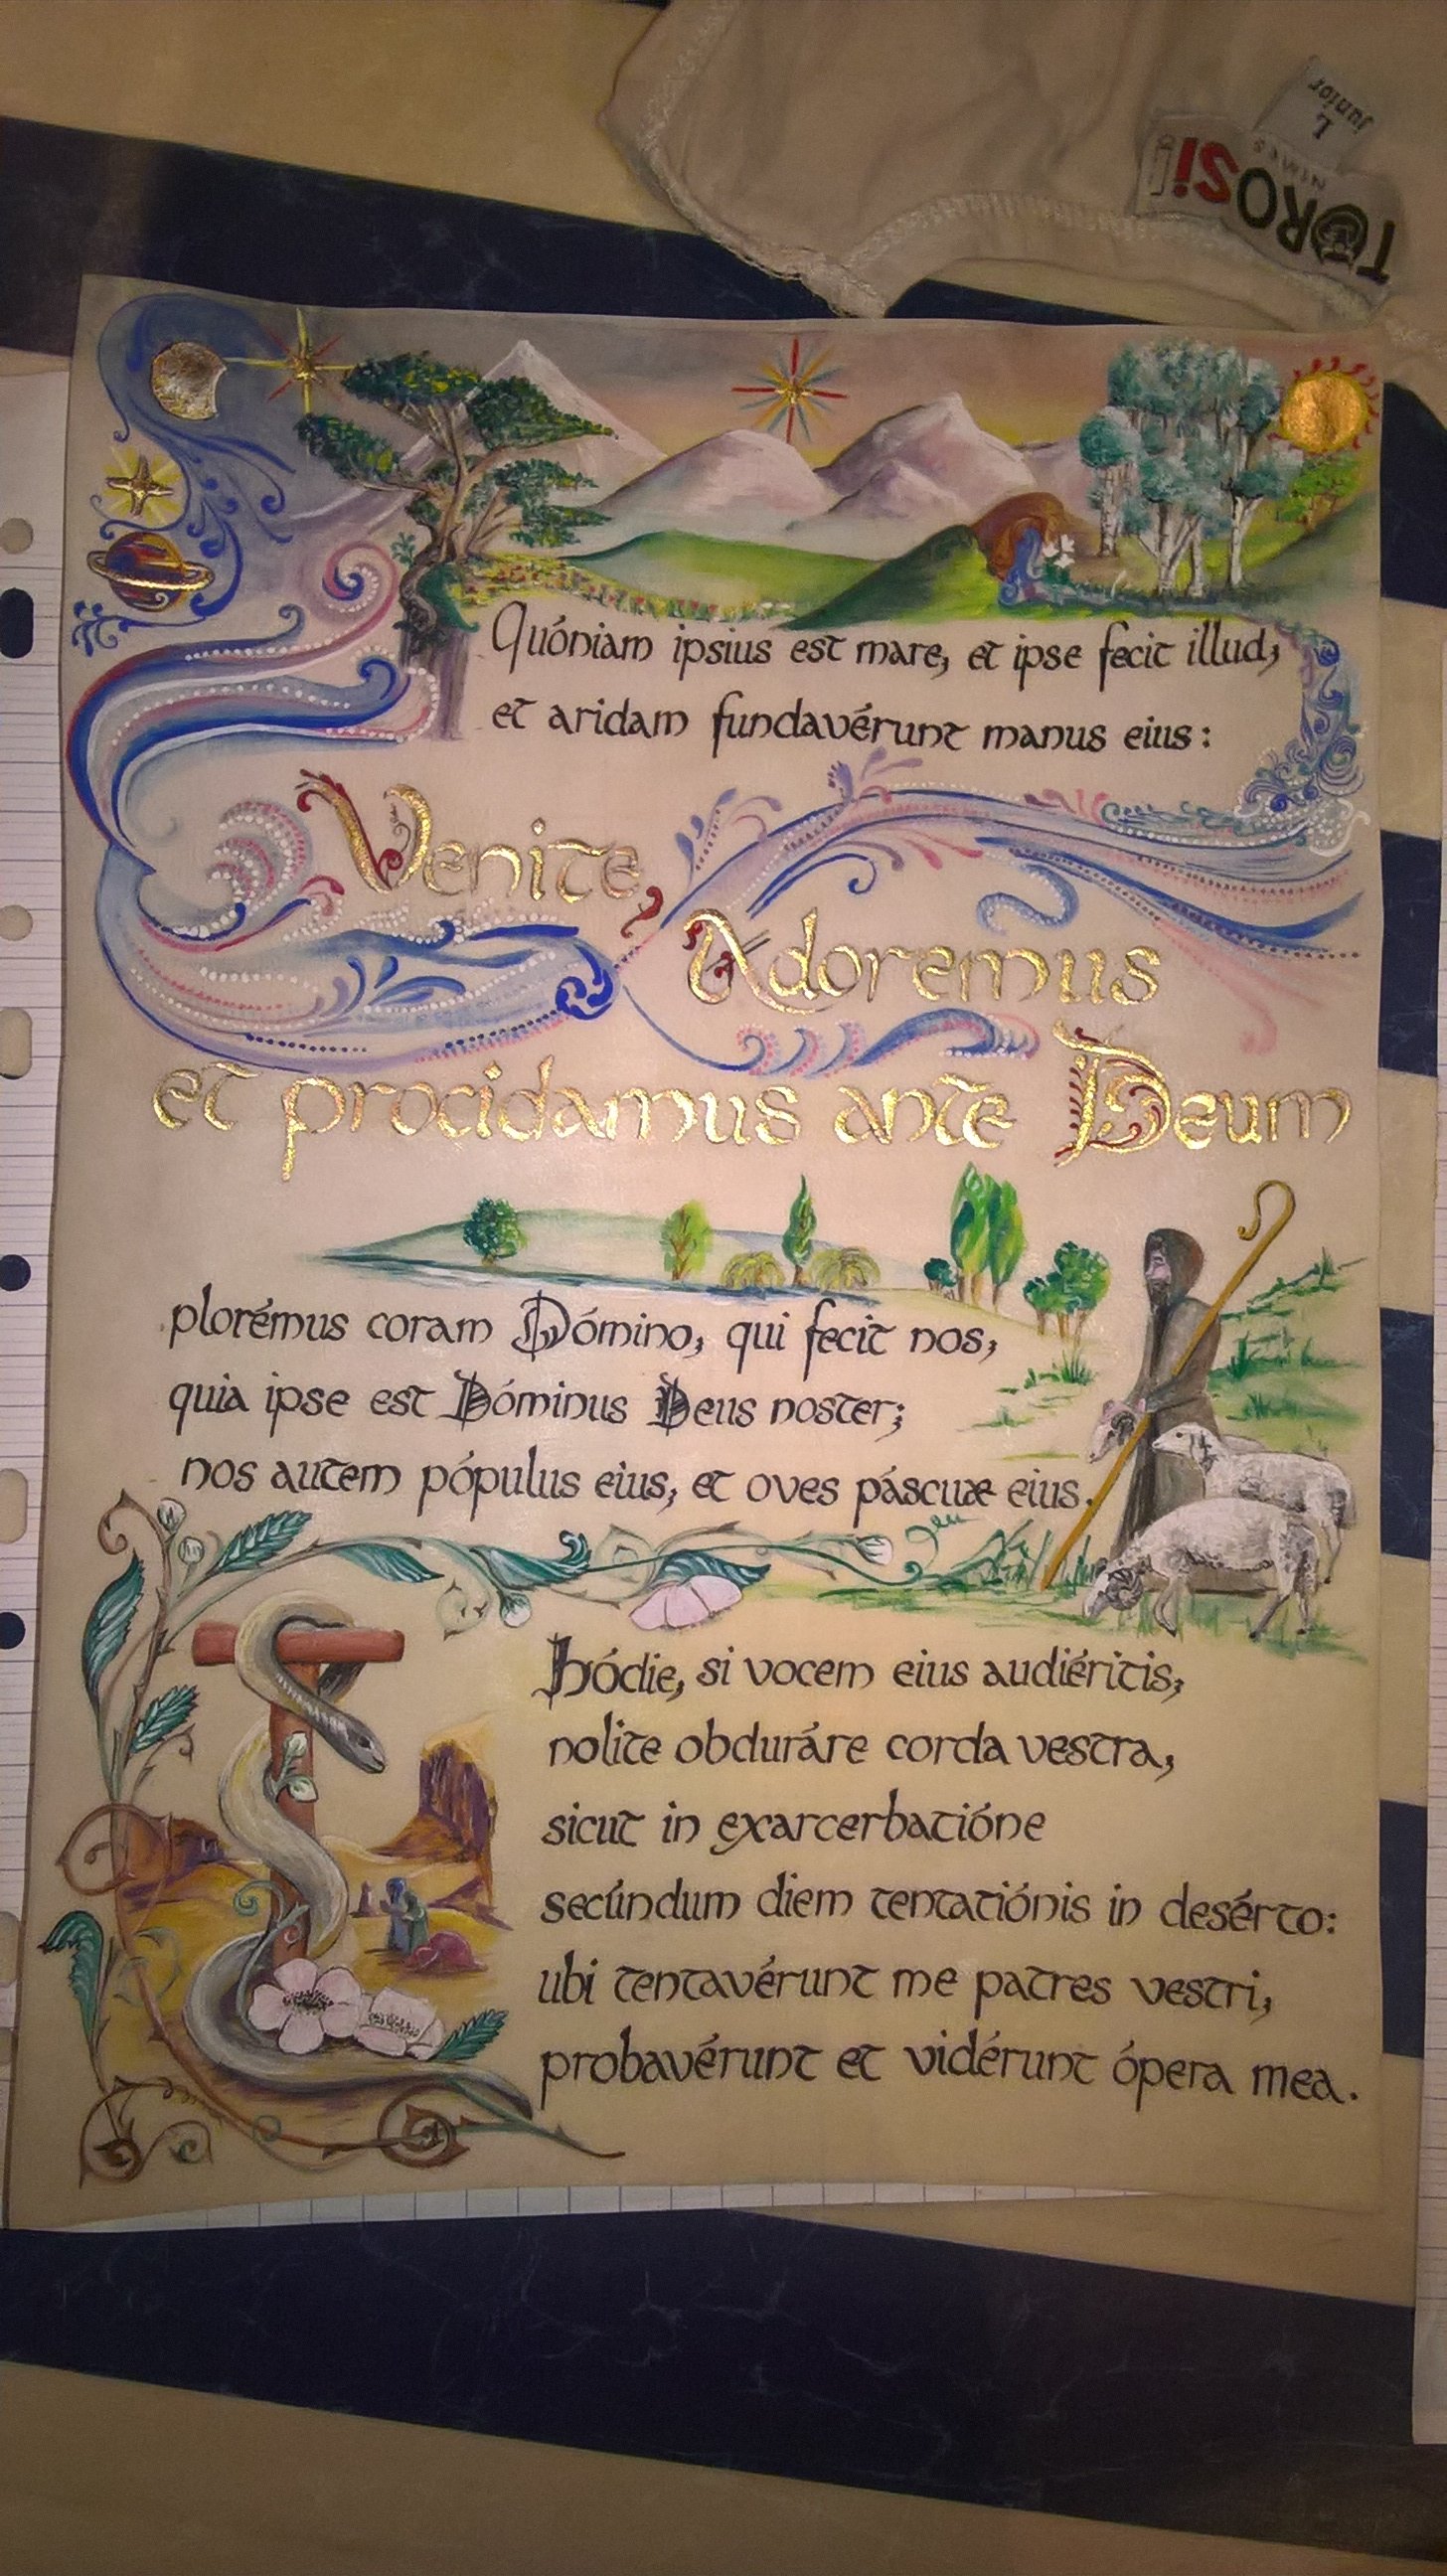 L
junior
TOROSi!
NIMES
Quóniam ipsius est mare, et ipse fecit illud,
et aridam fundavérunt manus eius:
Venite,
Adoremus
et procidamus ante Deum
plorémus coram Dómino, qui fecit nos,
quia ipse est Dóminus Deus noster;
nos autem pópulus eius, et oves páscuæ eius.
hódie, si vocem eius audiéritis,
nolite obduráre corda vestra,
sicut in exarcerbatióne
secúndum diem tentatiónis in desérto:
ubi tentavérunt me patres vestri,
probavérunt et vidérunt ópera mea.